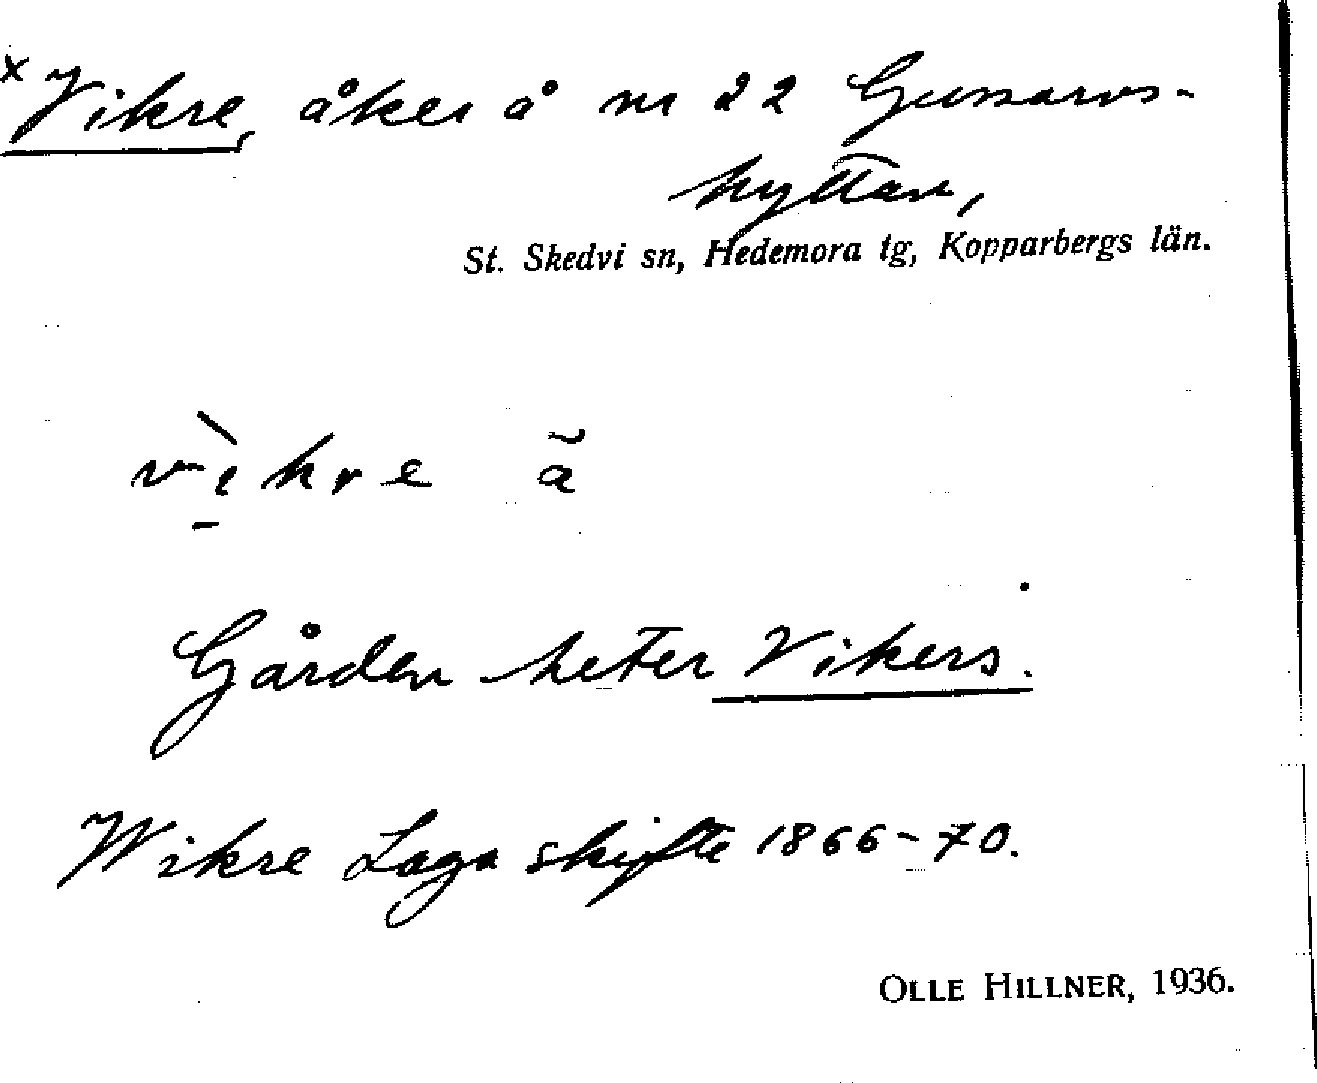 x Vikre, åker å nr 22 Gussarvs-
hyttan,
St. Skedvi sn, Hedemora tg, Kopparbergs län.
vìkre ã
Gården heter Vikers.
Wikre Laga skifte 1866-70.
OLLE HILLNER, 1936.